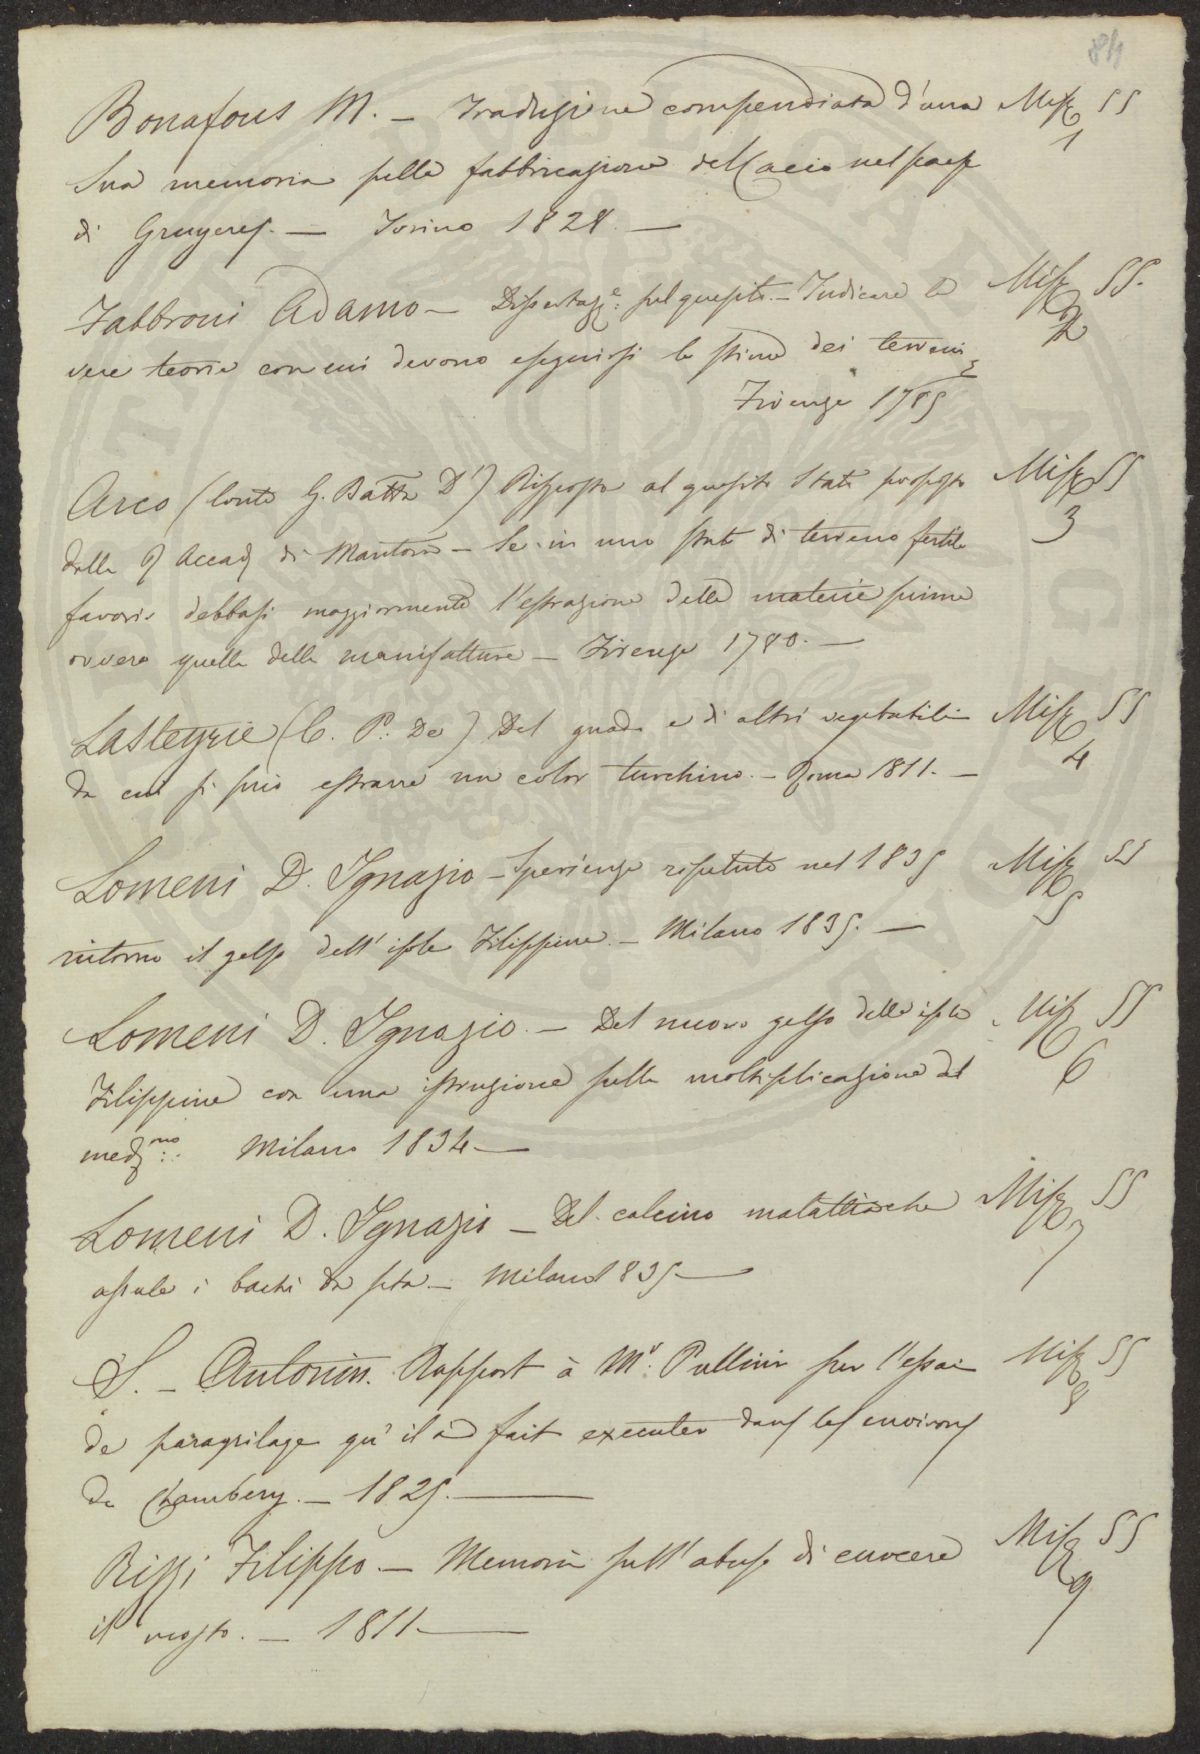 84
Bonafous M. — Traduzione compendiata d'una Misc 55
1
sua memoria sulla fabbricazione del Cacio nel paese
di Gruyeres. — Torino 1828. —
Fabbroni Adamo — Dissertaz.e sul quesito. — Indicare le Misc 55.
2
vere teorie con cui devono eseguirsi le stime dei terreni
Firenze 1785
Arco (Conte G. Batta D') Risposta al quesito stato proposto Misc 55
3
dalla R Accad di Mantova — Se in uno stato di terreno fertile
favorir debbasi maggiormente l'estrazione delle materie prime
ovvero quella delle manifatture — Firenze 1780. —
Lasteyrie (C. P. De) Del guado e di altri vegetabili Misc 55
4
da cui si può estrarre un color turchino. — Roma 1811. —
Lomeni D. Ignazio — Sperienze ripetute nel 1835 Misc 55
5
intorno il gelso dell'isole Filippine. — Milano 1835. —
Lomeni D. Ignazio. — Del nuovo gelso delle isole Misc 55
6
Filippine con una istruzione sulla moltiplicazione del
medmo. Milano 1834 —
Lomeni D. Ignazio — Del calcino malattia che Misc 55
7
assale i bachi da seta — Milano 1835 —
S. — Antonin. Rapport à Mr. Pullini sur l'essai Misc 55
8
de paragrêlage qu'il a fait executer dans les environs
de Chambery. — 1825. —
Rizzi Filippo. — Memoria sull'abuso di cuocere Misc 55
9
il mosto. — 1811 —